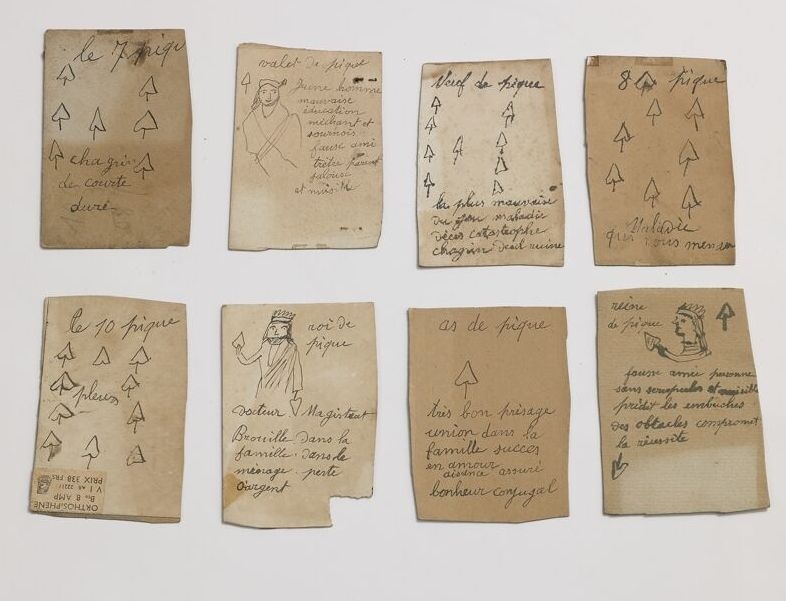 le 7 piqu
chagrin
de courte
duré
valet de pique
Jeune homme
mauvaise
éducation
méchant et
sournois
fause ami
trètre parent
jalouse
et nuisible
Neuf de pique
la plus mauvaise
du jeu maladie
décès catastrophe
chagrin deuil ruine
8 pique
Maladie
qui vous menace
le 10 pique
pleurs
ORTHOSPHENE
Bte 8 AMP
PRIX 338 FRS
roi de
pique
docteur Magistrat
Brouille dans la
famille dans le
ménage perte
d'argent
as de pique
très bon présage
union dans la
famille succès
en amour
aisance assuré
bonheur conjugal
reine
de pique
fausse amie personne
sans scrupules et nuisible
prédit les embuches
des obstacles compromet
la réussite